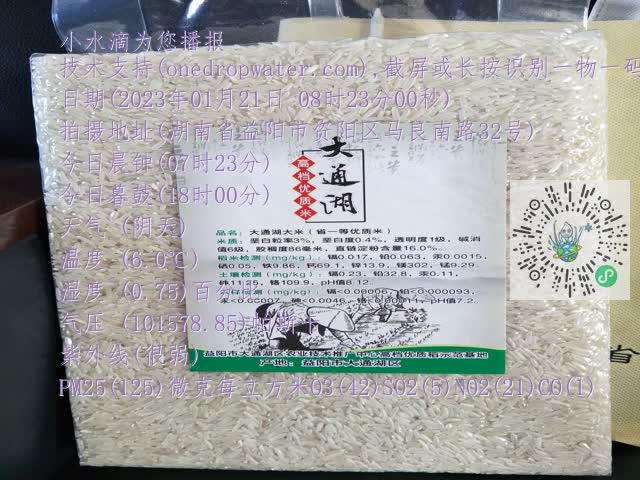 小水滴为您播报
技术支持(onedropwater.com),截屏或长按识别一物一码
日期(2023年01月21日 08时23分00秒)
拍摄地址(湖南省益阳市资阳区马良南路32号)
今日晨钟(07时23分)
今日暮鼓(18时00分)
天气 (阴天)
温度 (6.0℃)
湿度 (0.75)百分
气压 (101578.85)帕斯卡
紫外线(很弱)
PM25(125)微克每立方米O3(42)SO2(5)NO2(21)CO(1)
大通湖
高档优质米
品名：大通湖大米（省一等优质米）
米质：垩白粒率3%，垩白度0.4%，透明度1级，碱消
值6级，胶稠度86毫米，直链淀粉含量16.0%。
稻米检测(mg/kg)：镉0.017，铅0.063，汞0.0015，
硒0.05，铁9.86，钙69.1，锌13.9，镁302，锰9.29。
土壤检测(mg/kg)：镉0.23，铅32.8，汞0.11，
砷11.25，铬109.9，pH值8.12。
水样检测(mg/kg)：镉<0.00006，铅<0.000093，
汞<0.00007，砷<0.0046，铬<0.00011，pH值7.2.
益阳市大通湖区农业技术推广中心高档优质稻示范基地
产地：益阳市大通湖区
省